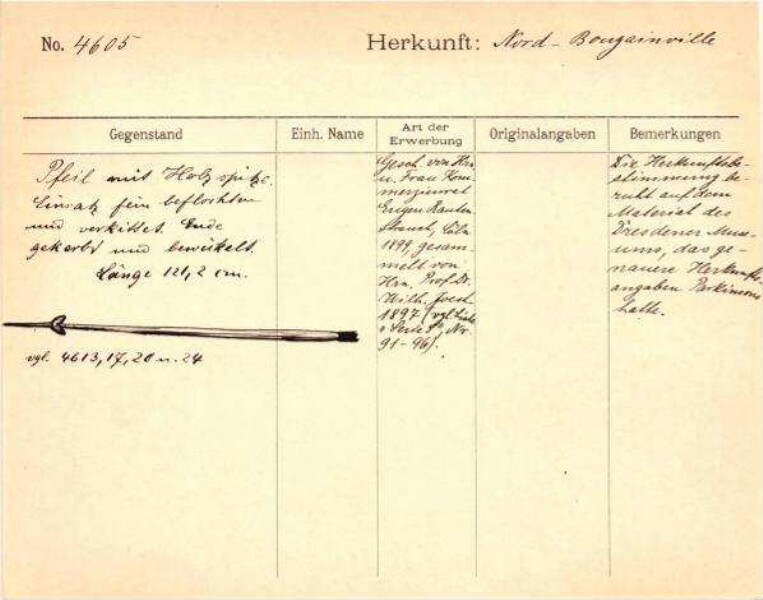 No. 4605
Herkunft: Nord-Bougainville
Gegenstand
Einh. Name
Art der
Erwerbung
Originalangaben
Bemerkungen
Pfeil mit Holzspitze.
Einsatz fein beflochten
und verkittet. Ende
gekerbt und bewickelt.
Länge 121,2 cm.
vgl. 4613, 17, 20 u. 24
Gesch. von Hrn.
u. Frau Kom
merzienrat
Eugen Rauten
strauch, Cöln
1899, gesam
melt von
Hrn. Prof. Dr.
Wilh. Joest
1897 (vgl. Liste
Nr.
91-96).
Die Herkunftsbe-
stimmung be-
ruht auf dem
Material des
Dresdener Muse-
ums, das ge-
nauere Herkunfts-
angaben Parkinsons
hatte.